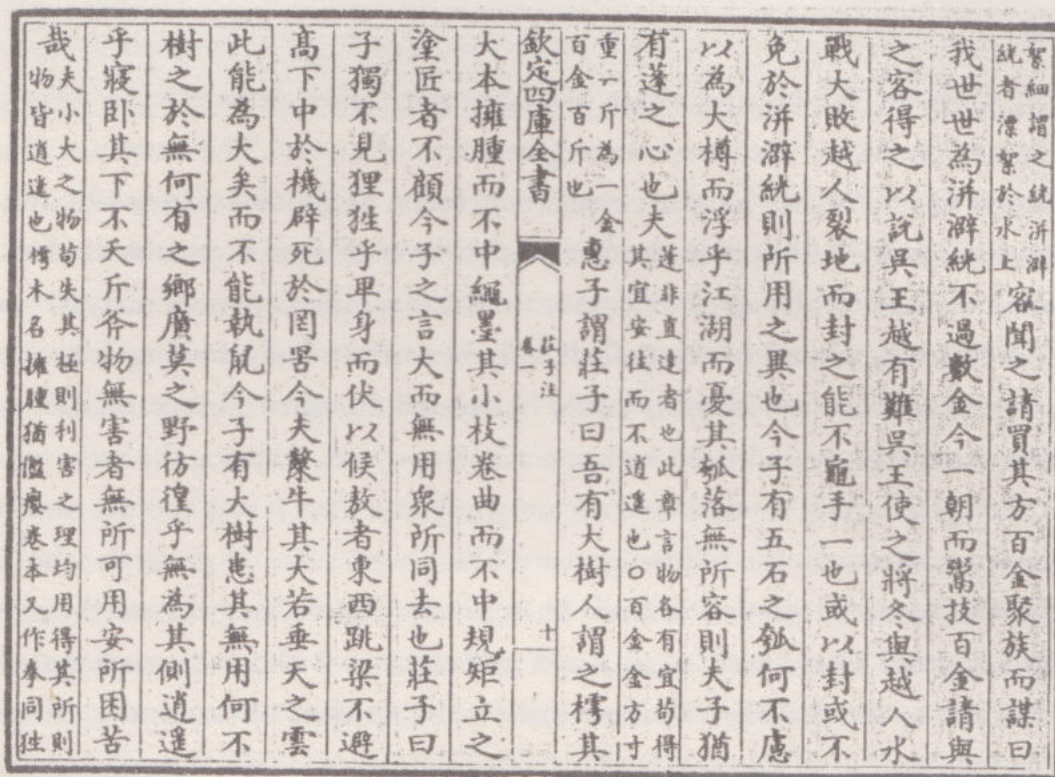 絮細謂之絖洴澼
絖者漂絮於水上
客聞之請買其方百金聚族而謀曰
我世世為洴澼絖不過數金今一朝而鬻技百金請與
之客得之以說吳王越有難吳王使之將冬與越人水
戰大敗越人裂地而封之能不龜手一也或以封或不
免於洴澼絖則所用之異也今子有五石之瓠何不慮
以為大樽而浮乎江湖而憂其瓠落無所容則夫子猶
有蓬之心也夫
蓬非直達者也此章言物各有宜苟得
其宜安往而不逍遙也○百金金方寸
重一斤為一金
百金百斤也
惠子謂莊子曰吾有大樹人謂之樗其
欽定四庫全書
莊子注
卷一
十一
大本擁腫而不中繩墨其小枝卷曲而不中規矩立之
塗匠者不顧今子之言大而無用衆所同去也莊子曰
子獨不見狸狌乎卑身而伏以候敖者東西跳梁不避
髙下中於機辟死於罔罟今夫斄牛其大若垂天之雲
此能為大矣而不能執鼠今子有大樹患其無用何不
樹之於無何有之鄉廣莫之野彷徨乎無為其側逍遥
乎寢卧其下不夭斤斧物無害者無所可用安所困苦
哉
夫小大之物苟失其極則利害之理均用得其所則
物皆逍遥也樗木名擁腫猶癭卷本又作拳同狌